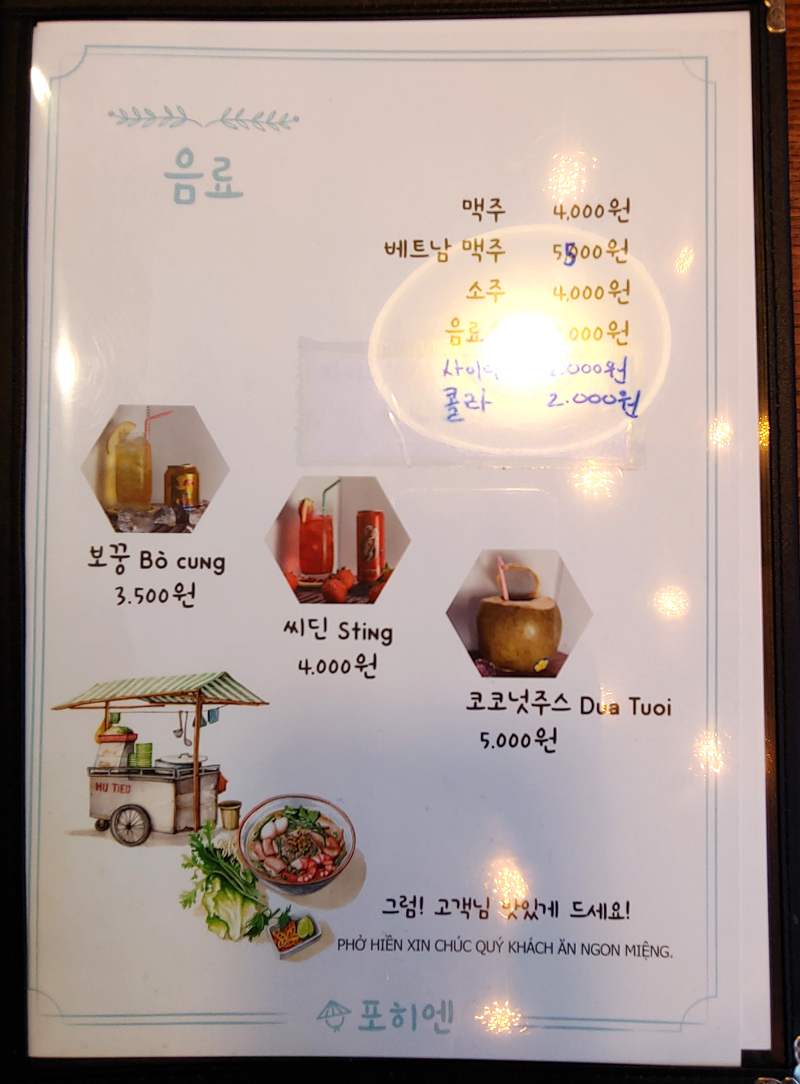 음료
맥주 4,000원
베트남 맥주 5500원
소주 4,000원
음료 000원
사이 2.000원
콜라 2.000원
보꿍 Bò cung
3.500원
씨딘 Sting
4.000원
코코넛주스 Dua Tuoi
5.000원
HU TIEU
그럼! 고객님 맛있게 드세요!
PHỞ HIỀN XIN CHÚC QUÝ KHÁCH ĂN NGON MIỆNG.
포히엔